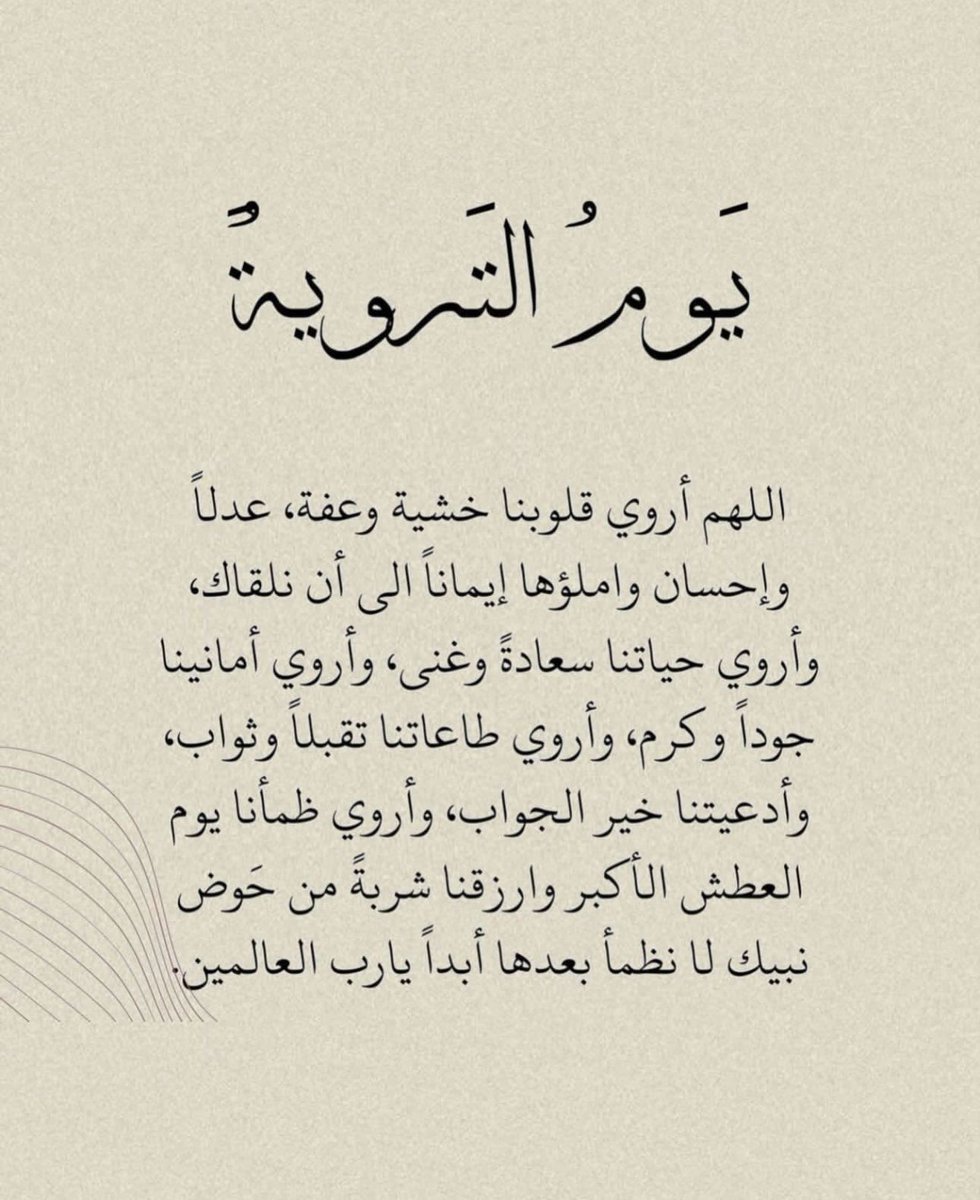 يَومُ التَرويةٌ
اللهم أروي قلوبنا خشية وعفة، عدلاً
وإحسان واملؤها إيماناً الى أن نلقاك،
وأروي حياتنا سعادةً وغنى، وأروي أمانينا
جوداً وكرم، وأروي طاعاتنا تقبلاً وثواب،
وأدعيتنا خير الجواب، وأروي ظمأنا يوم
العطش الأكبر وارزقنا شربةً من حَوض
نبيك لا نظمأ بعدها أبداً يارب العالمين.